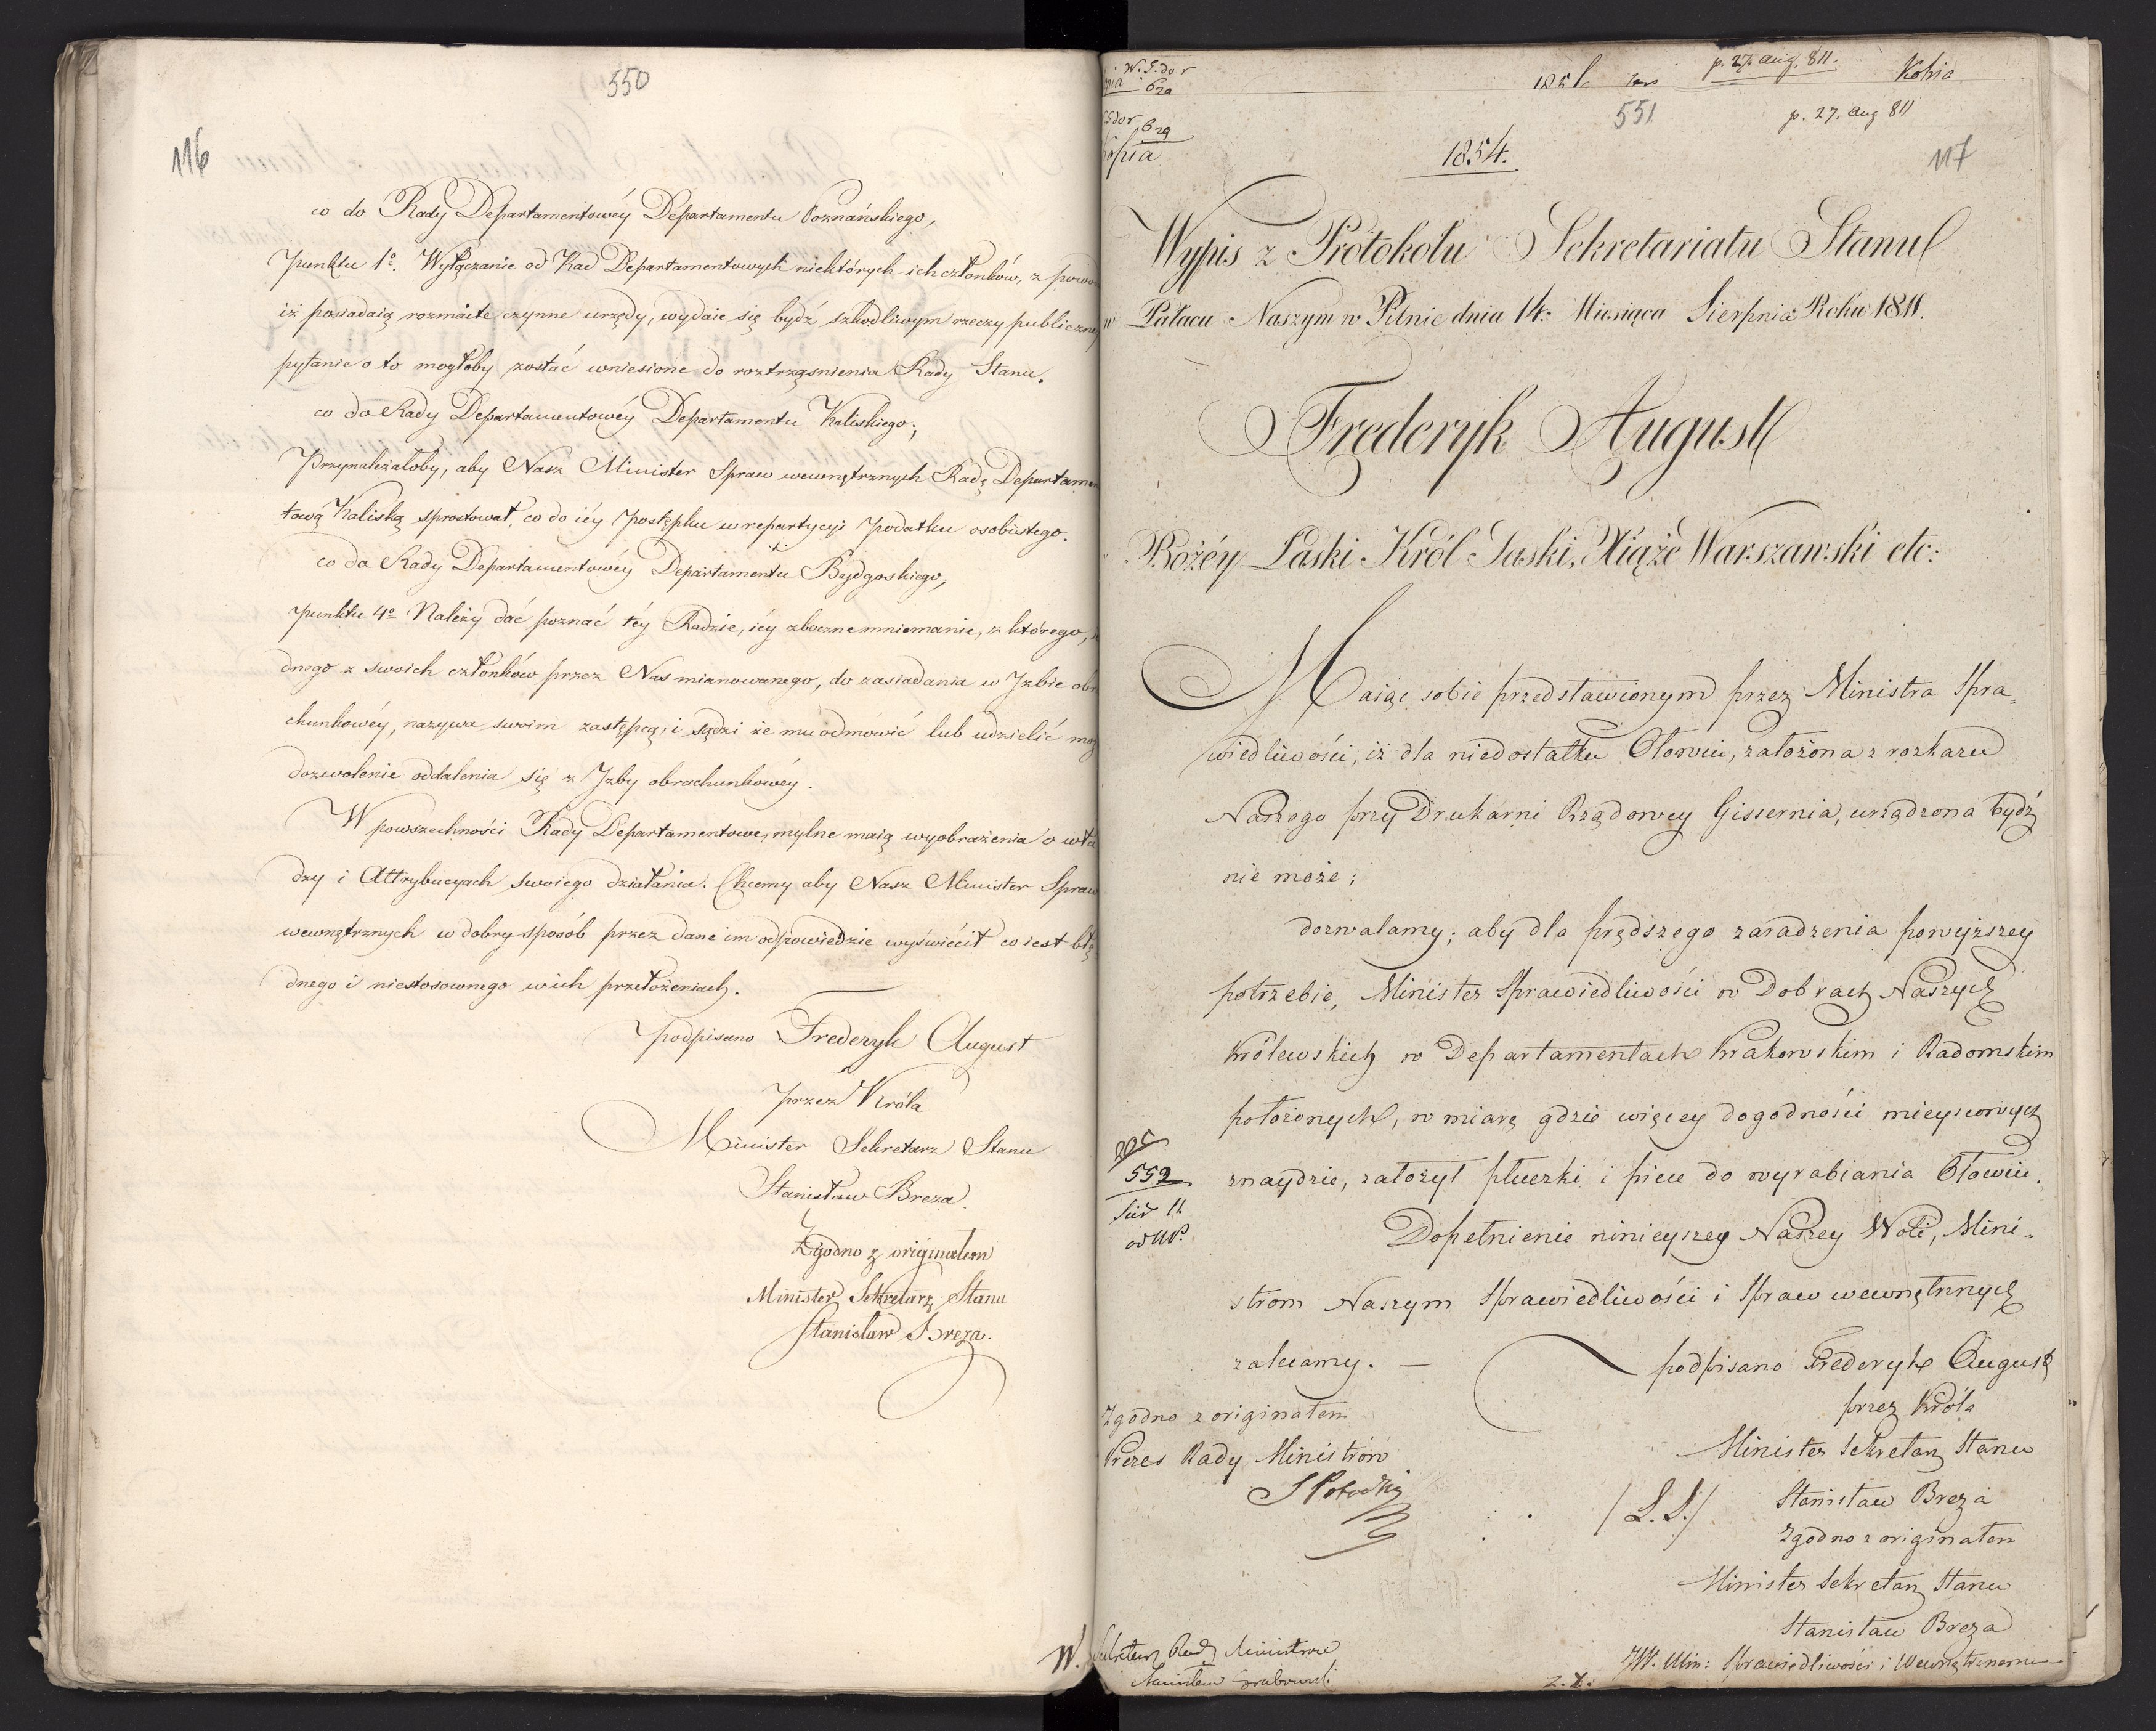 550
116
co do Rady Departamentowéy Departamentu Poznańskiego,
punktu 1º. Wyłączanie od Rad Departamentowych niektórych ich członków, z powo
iż posiadaią rozmaite czynne urzędy, wydaie się bydź szkodliwym rzeczy publiczney
pytanie o to mogłoby zostać wniesione do roztrząsnienia Rady Stanu.
co do Rady Departamentowéy Departamentu Kaliskiego;
Przynależałoby, aby Nasz Minister Spraw wewnętrznych Radę Departamen
tową Kaliską sprostował, co do iéy postępku w repartycyi podatku osobistego.
co do Rady Departamentowéy Departamentu Bydgoskiego,
punktu 4º Należy dać poznać téy Radzie, iéy zboczne mniemanie, z którego,
dnego z swoich członków przez Nas mianowanego, do zasiadania w Izbie obra
chunkowéy, nazywa swoim zastępcą, i sądzi że mu odmówić lub udzielić moż
dozwolenie oddalenia się z Izby obrachunkowéy.
W powszechności Rady Departamentowe, mylne maią wyobrażenia o wła
dzy i Attrybucyach swoiego działania. Chcemy aby Nasz Minister Spraw
wewnętrznych w dobry sposób przez dane im odpowiedzie wyświécił co iest błę
dnego i niestosownego w ich przełożeniach.
podpisano Frederyk August
przez Króla
Minister Sekretarz Stanu
Stanisław Breza.
Zgodno z originałem
Minister Sekretarz Stanu
Stanisław Breza.
W. G. dor
629
p. 27. aug. 811.
Kopia
551
p. 27. Aug 811
629
Kopia
1854.
117
Wypis z Protokołu Sekretariatu Stanu
w Pałacu Naszym w Pilnic dnia 14. Miesiąca Sierpnia Roku 1811.
Frederyk August
Bożéy Łaski Król Saski, Xiąże Warszawski etc:
Maiąc sobie przedstawionym przez Ministra Spra-
wiedliwości, iż dla niedostatku Ołowiu, założona z rozkazu
Naszego przy Drukarni Rządowey Gissernia, urządzona bydź
nie może;
dozwalamy; aby dla prędszego zaradzenia powyższey
potrzebie, Minister Sprawiedliwości w Dobrach Naszych
Królewskich w Departamentach Krakowskim i Radomskim
położonych, w miarę gdzie więcey dogodności mieyscowych
znaydzie, założył płuczki i piece do wyrabiania Ołowiu.
552
Dopełnienie ninieyszey Naszey Woli, Mini-
strom Naszym Sprawiedliwości i Spraw wewnętrznych
zalecamy. —
podpisano Frederyk August
przez Króla
Minister Sekretarz Stanu
/L.S./ Stanisław Breza
Zgodno z originałem
Minister Sekretarz Stanu
Stanisław Breza
Zgodno z originałem
Prezes Rady Ministrów
S Potocki
Sekretarz Rady Ministrów
Stanisław Grabowski
JW. Min: Sprawiedliwości i Wewnętrznemu